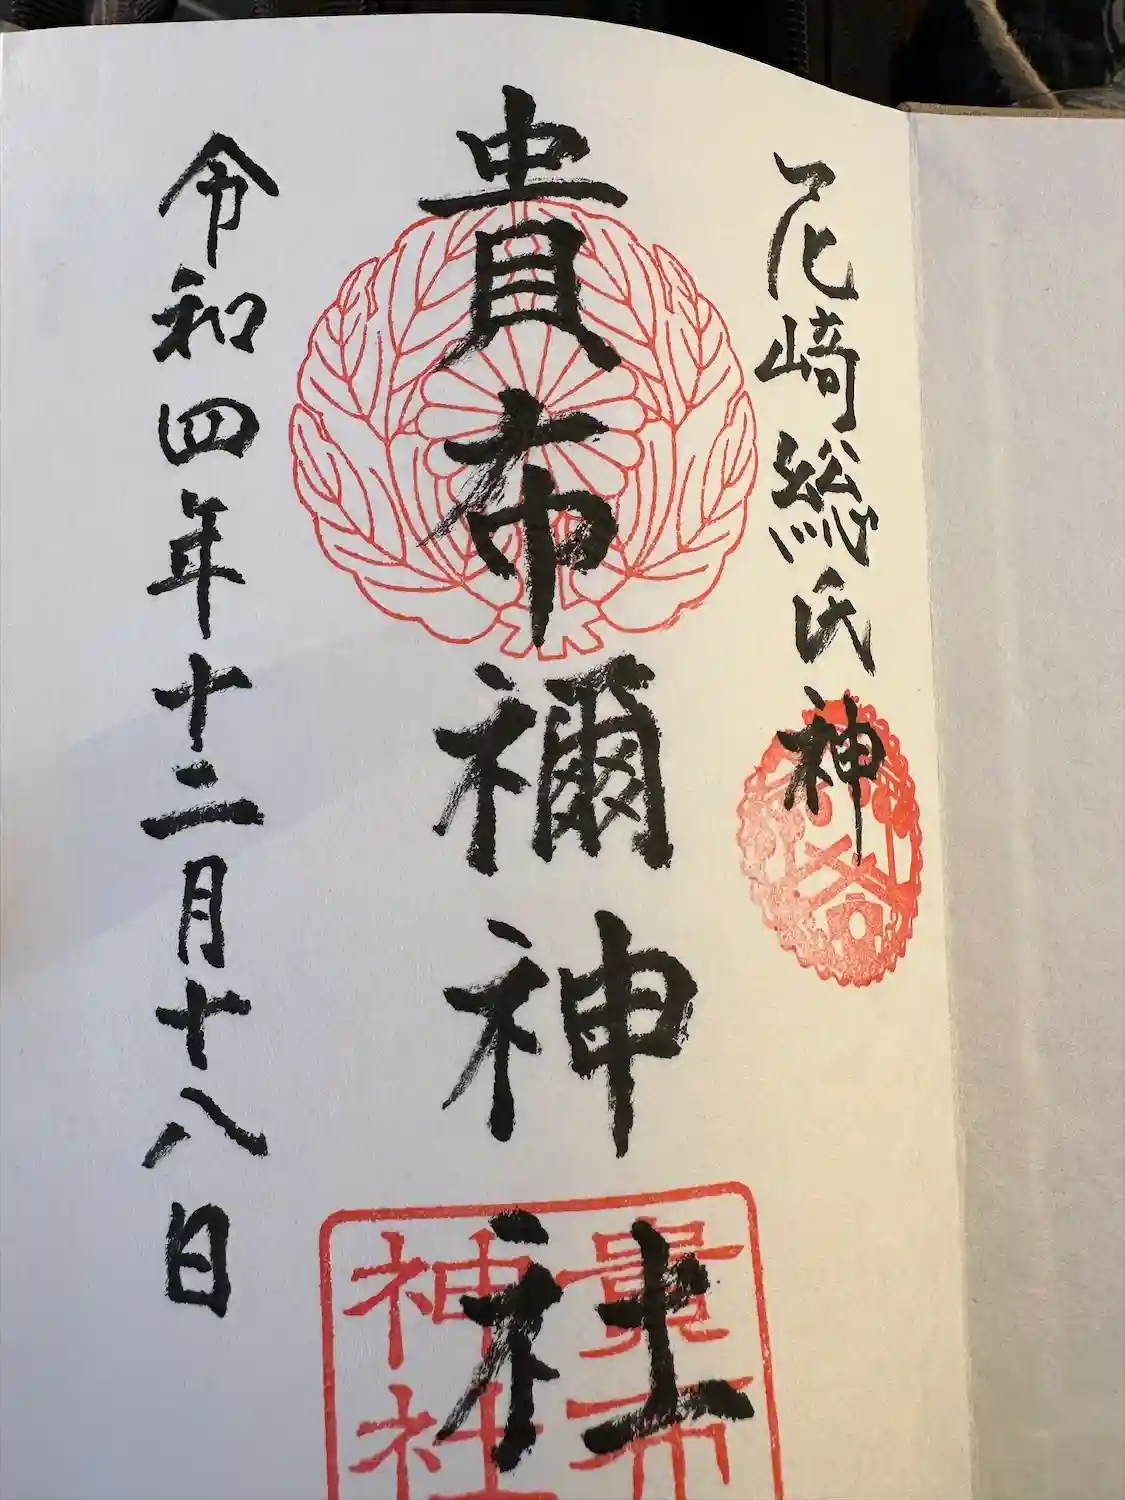 尼崎総氏神
貴布禰神社
令和四年十二月十八日
貴布
神社